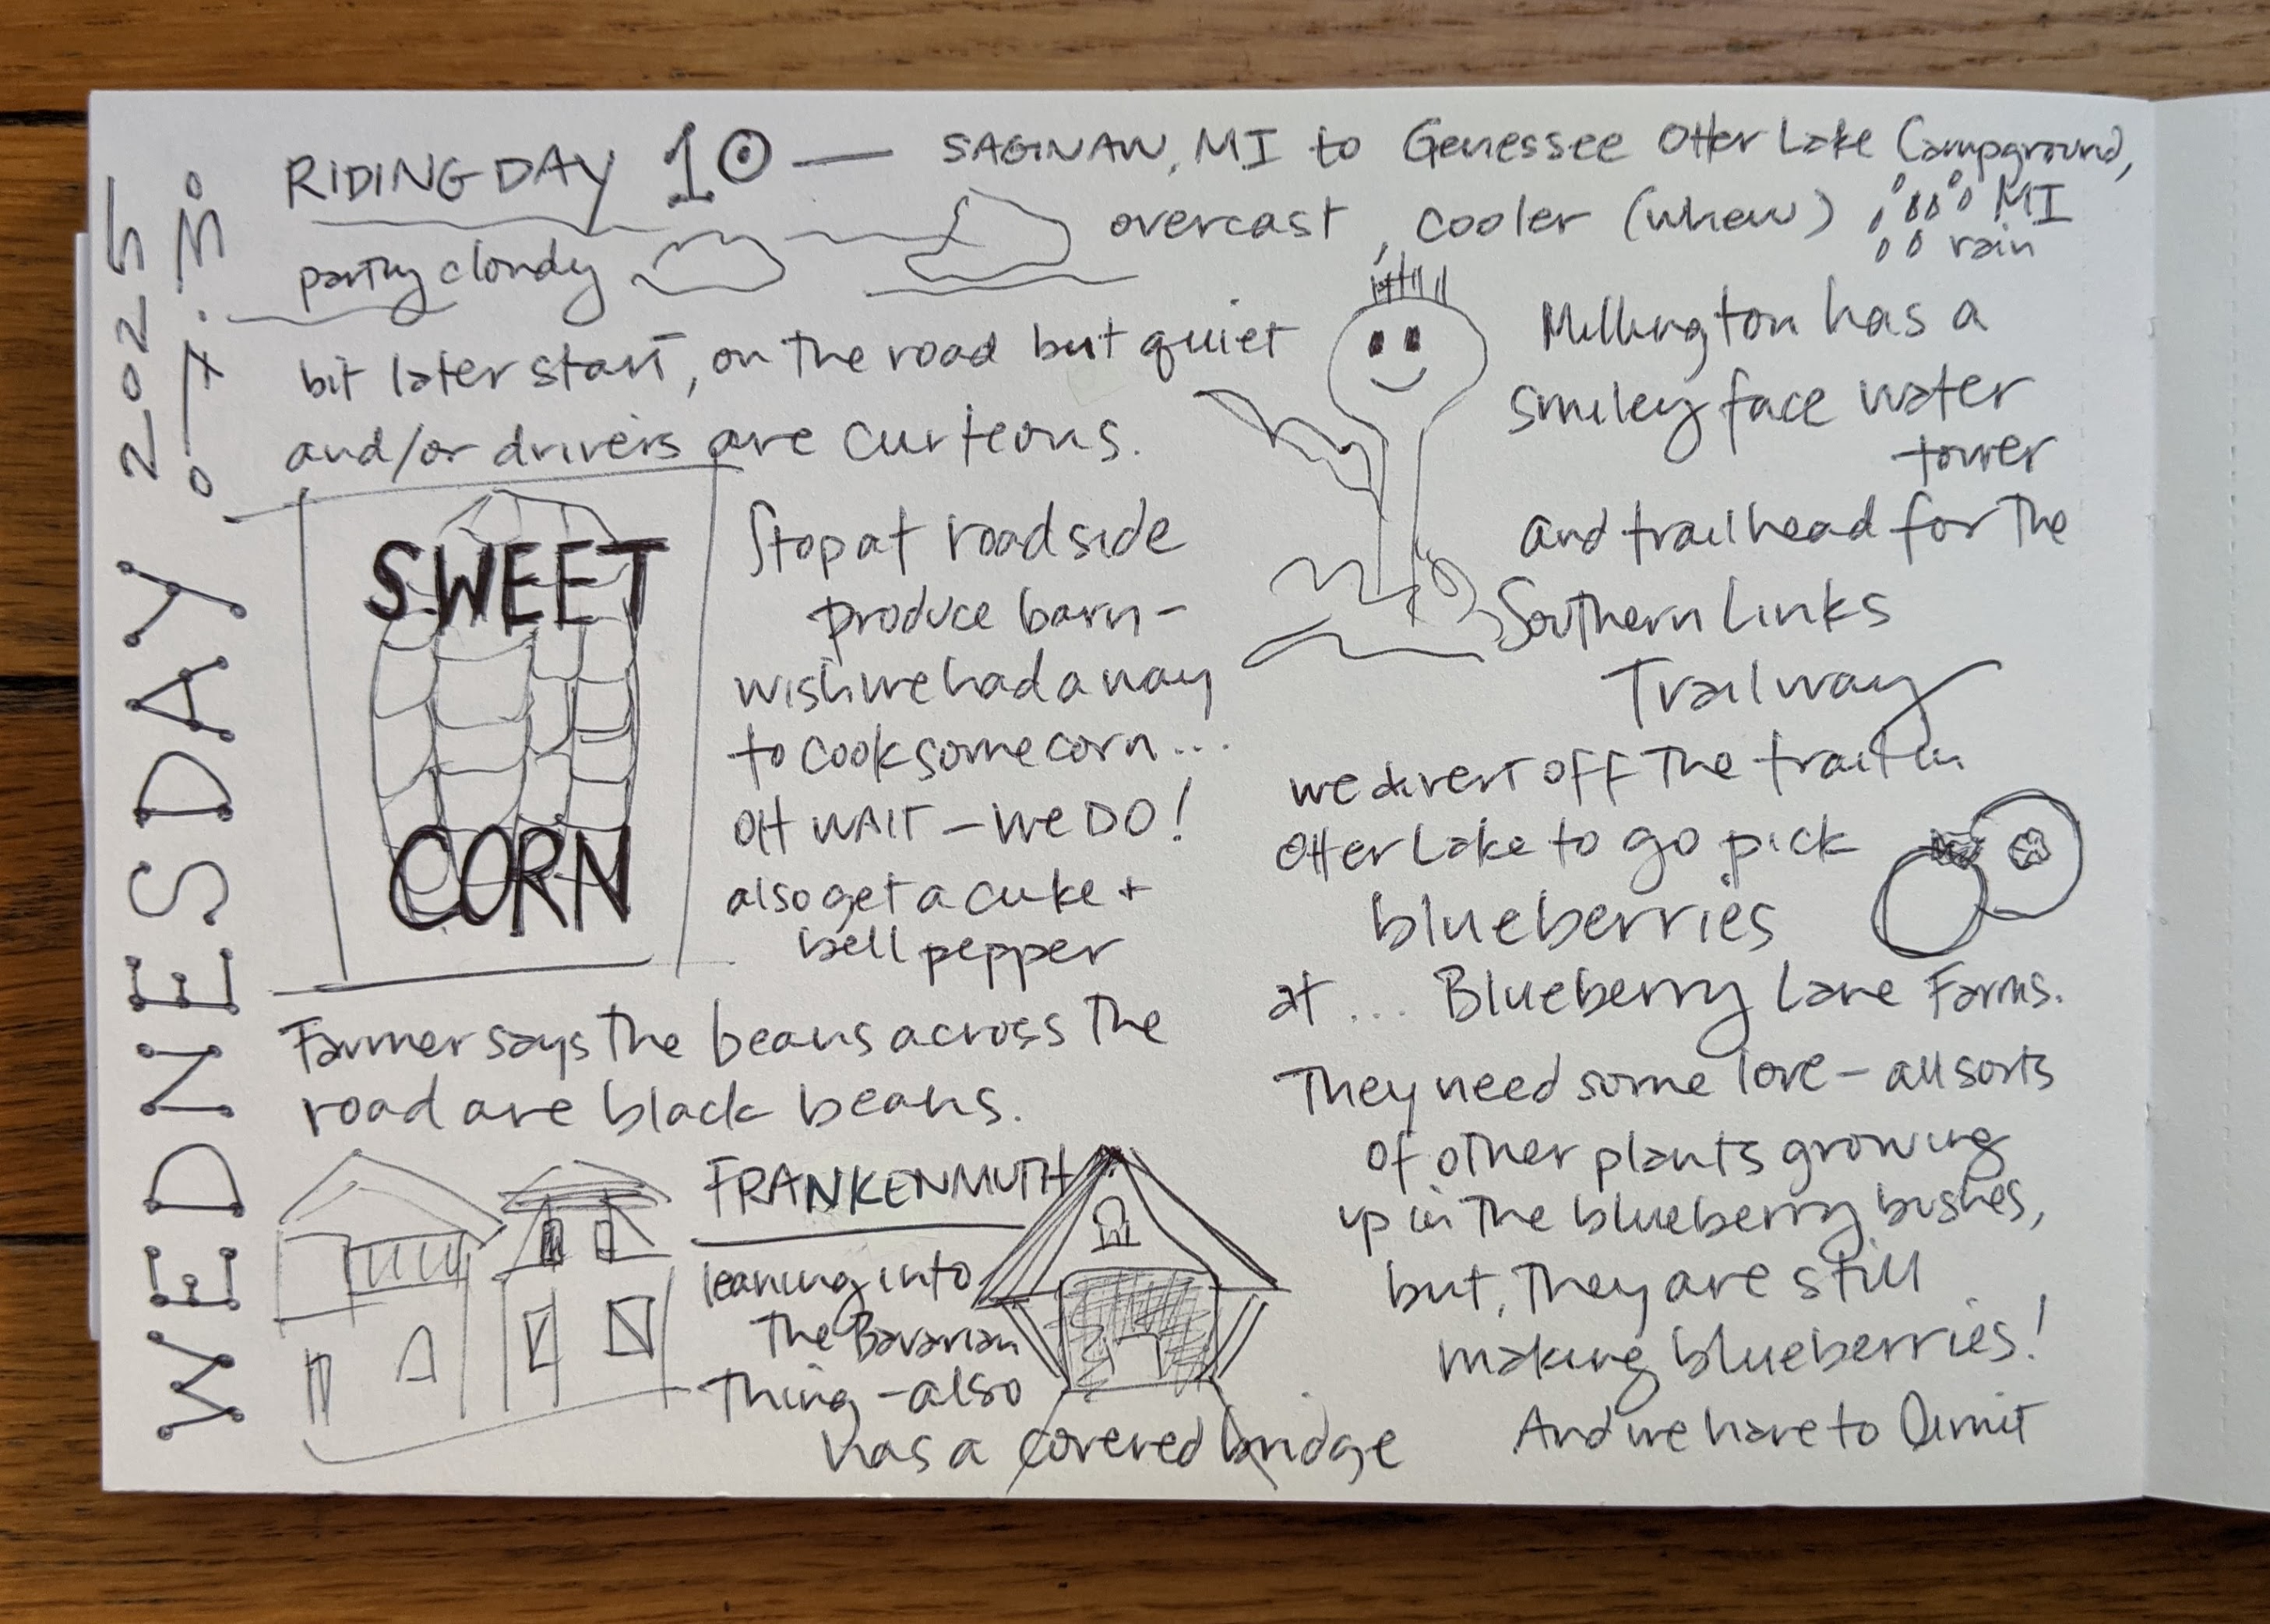 WEDNESDAY 2025
RIDING DAY 10 — SAGINAW, MI to Genessee Otter Lake Campground,
MI
partly cloudy
overcast, cooler (whew)
rain
bit later start, on the road but quiet
and/or drivers are curteous.
SWEET
CORN
Stop at roadside
produce barn –
wish we had a way
to cook some corn...
OH WAIT – WE DO!
also get a cuke +
bell pepper
Farmer says the beans across the
road are black beans.
FRANKENMUTH
leaning into
the Bavarian
thing – also
has a covered bridge
Millington has a
smiley face water
tower
and trailhead for the
Southern Links
Trailway
we divert off the trail in
Otter Lake to go pick
blueberries
at ... Blueberry Lane Farms.
They need some love – all sorts
of other plants growing
up in the blueberry bushes,
but, they are still
making blueberries!
And we have to limit